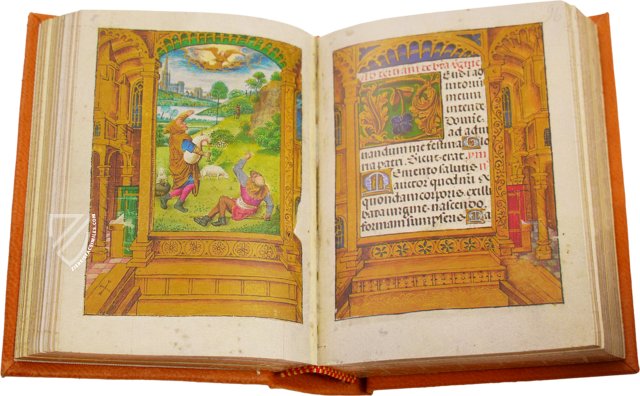 Ad tertiam de b̄ta v̄gine
Eus i ad
iutoriū
meum
intende
Domine
ad adiu
uandum me festina Glo
ria patri. Sicut erat. ym
Memento salutis
auctor quod nr̄i
quondam corporis, ex illi
bata uirgine nascendo,
formam sumpseris. Ma
ZIEREIS FACSIMILES